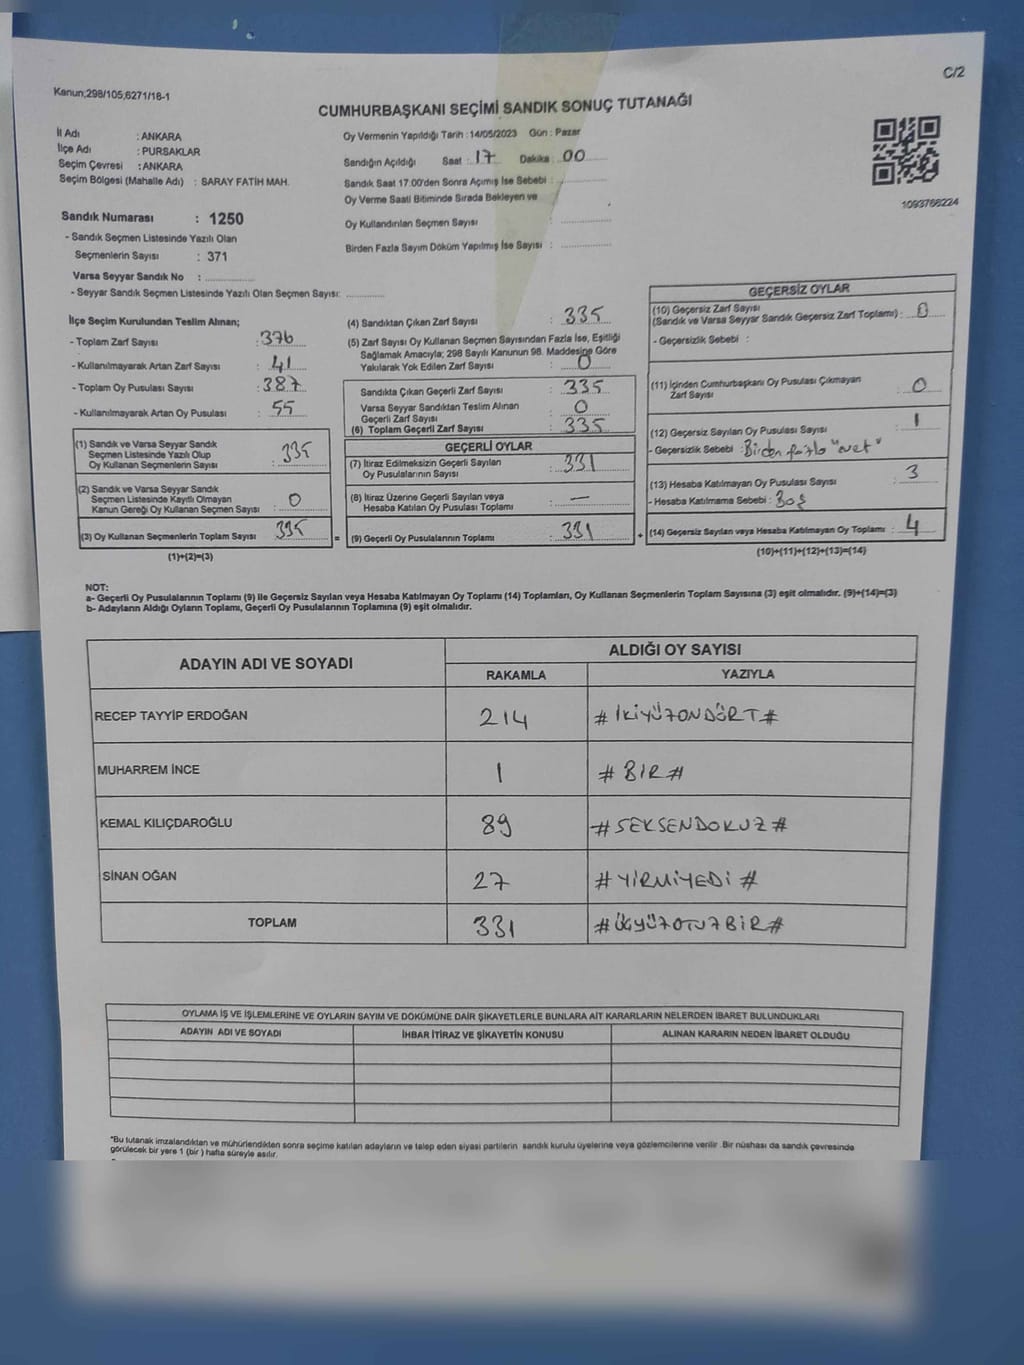 C/2
Kanun;298/105;6271/18-1
CUMHURBAŞKANI SEÇİMİ SANDIK SONUÇ TUTANAĞI
İl Adı : ANKARA
İlçe Adı : PURSAKLAR
Seçim Çevresi : ANKARA
Seçim Bölgesi (Mahalle Adı) : SARAY FATİH MAH.
Oy Vermenin Yapıldığı Tarih :14/05/2023 Gün : Pazar
Sandığın Açıldığı Saat : 17 Dakika : 00
Sandık Saat 17:00'den Sonra Açımış İse Sebebi :
Oy Verme Saati Bitiminde Sırada Bekleyen ve
Oy Kullandırılan Seçmen Sayısı :
Birden Fazla Sayım Döküm Yapılmış İse Sayısı :
1093766224
Sandık Numarası : 1250
- Sandık Seçmen Listesinde Yazılı Olan
Seçmenlerin Sayısı : 371
Varsa Seyyar Sandık No :
- Seyyar Sandık Seçmen Listesinde Yazılı Olan Seçmen Sayısı:
İlçe Seçim Kurulundan Teslim Alınan;
- Toplam Zarf Sayısı : 376
- Kullanılmayarak Artan Zarf Sayısı : 41
- Toplam Oy Pusulası Sayısı : 387
- Kullanılmayarak Artan Oy Pusulası : 55
(1) Sandık ve Varsa Seyyar Sandık
Seçmen Listesinde Yazılı Olup
Oy Kullanan Seçmenlerin Sayısı : 335
(2) Sandık ve Varsa Seyyar Sandık
Seçmen Listesinde Kayıtlı Olmayan
Kanun Gereği Oy Kullanan Seçmen Sayısı : 0
(3) Oy Kullanan Seçmenlerin Toplam Sayısı : 335
(1)+(2)=(3)
(4) Sandıktan Çıkan Zarf Sayısı : 335
(5) Zarf Sayısı Oy Kullanan Seçmen Sayısından Fazla İse, Eşitliği
Sağlamak Amacıyla; 298 Sayılı Kanunun 98. Maddesine Göre
Yakılarak Yok Edilen Zarf Sayısı : 0
Sandıkta Çıkan Geçerli Zarf Sayısı : 335
Varsa Seyyar Sandıktan Teslim Alınan
Geçerli Zarf Sayısı : 0
(6) Toplam Geçerli Zarf Sayısı : 335
GEÇERLİ OYLAR
(7) İtiraz Edilmeksizin Geçerli Sayılan
Oy Pusulalarının Sayısı : 331
(8) İtiraz Üzerine Geçerli Sayılan veya
Hesaba Katılan Oy Pusulası Toplamı : —
= (9) Geçerli Oy Pusulalarının Toplamı : 331 +
GEÇERSİZ OYLAR
(10) Geçersiz Zarf Sayısı
(Sandık ve Varsa Seyyar Sandık Geçersiz Zarf Toplamı) : 0
- Geçersizlik Sebebi :
(11) İçinden Cumhurbaşkanı Oy Pusulası Çıkmayan
Zarf Sayısı : 0
(12) Geçersiz Sayılan Oy Pusulası Sayısı : 1
- Geçersizlik Sebebi : Birden fazla "evet"
(13) Hesaba Katılmayan Oy Pusulası Sayısı : 3
- Hesaba Katılmama Sebebi : Boş
(14) Geçersiz Sayılan veya Hesaba Katılmayan Oy Toplamı : 4
(10)+(11)+(12)+(13)=(14)
NOT:
a- Geçerli Oy Pusulalarının Toplamı (9) ile Geçersiz Sayılan veya Hesaba Katılmayan Oy Toplamı (14) Toplamları, Oy Kullanan Seçmenlerin Toplam Sayısına (3) eşit olmalıdır. (9)+(14)=(3)
b- Adayların Aldığı Oyların Toplamı, Geçerli Oy Pusulalarının Toplamına (9) eşit olmalıdır.
ADAYIN ADI VE SOYADI ALDIĞI OY SAYISI
RAKAMLA YAZIYLA
RECEP TAYYİP ERDOĞAN 214 #İKİYÜZONDÖRT#
MUHARREM İNCE 1 #BİR#
KEMAL KILIÇDAROĞLU 89 #SEKSENDOKUZ#
SİNAN OĞAN 27 #YİRMİYEDİ#
TOPLAM 331 #ÜÇYÜZOTUZBİR#
OYLAMA İŞ VE İŞLEMLERİNE VE OYLARIN SAYIM VE DÖKÜMÜNE DAİR ŞİKAYETLERLE BUNLARA AİT KARARLARIN NELERDEN İBARET BULUNDUKLARI
ADAYIN ADI VE SOYADI İHBAR İTİRAZ VE ŞİKAYETİN KONUSU ALINAN KARARIN NEDEN İBARET OLDUĞU
*Bu tutanak imzalandıktan ve mühürlendikten sonra seçime katılan adayların ve talep eden siyasi partilerin sandık kurulu üyelerine veya gözlemcilerine verilir .Bir nüshası da sandık çevresinde
görülecek bir yere 1 (bir ) hafta süreyle asılır.